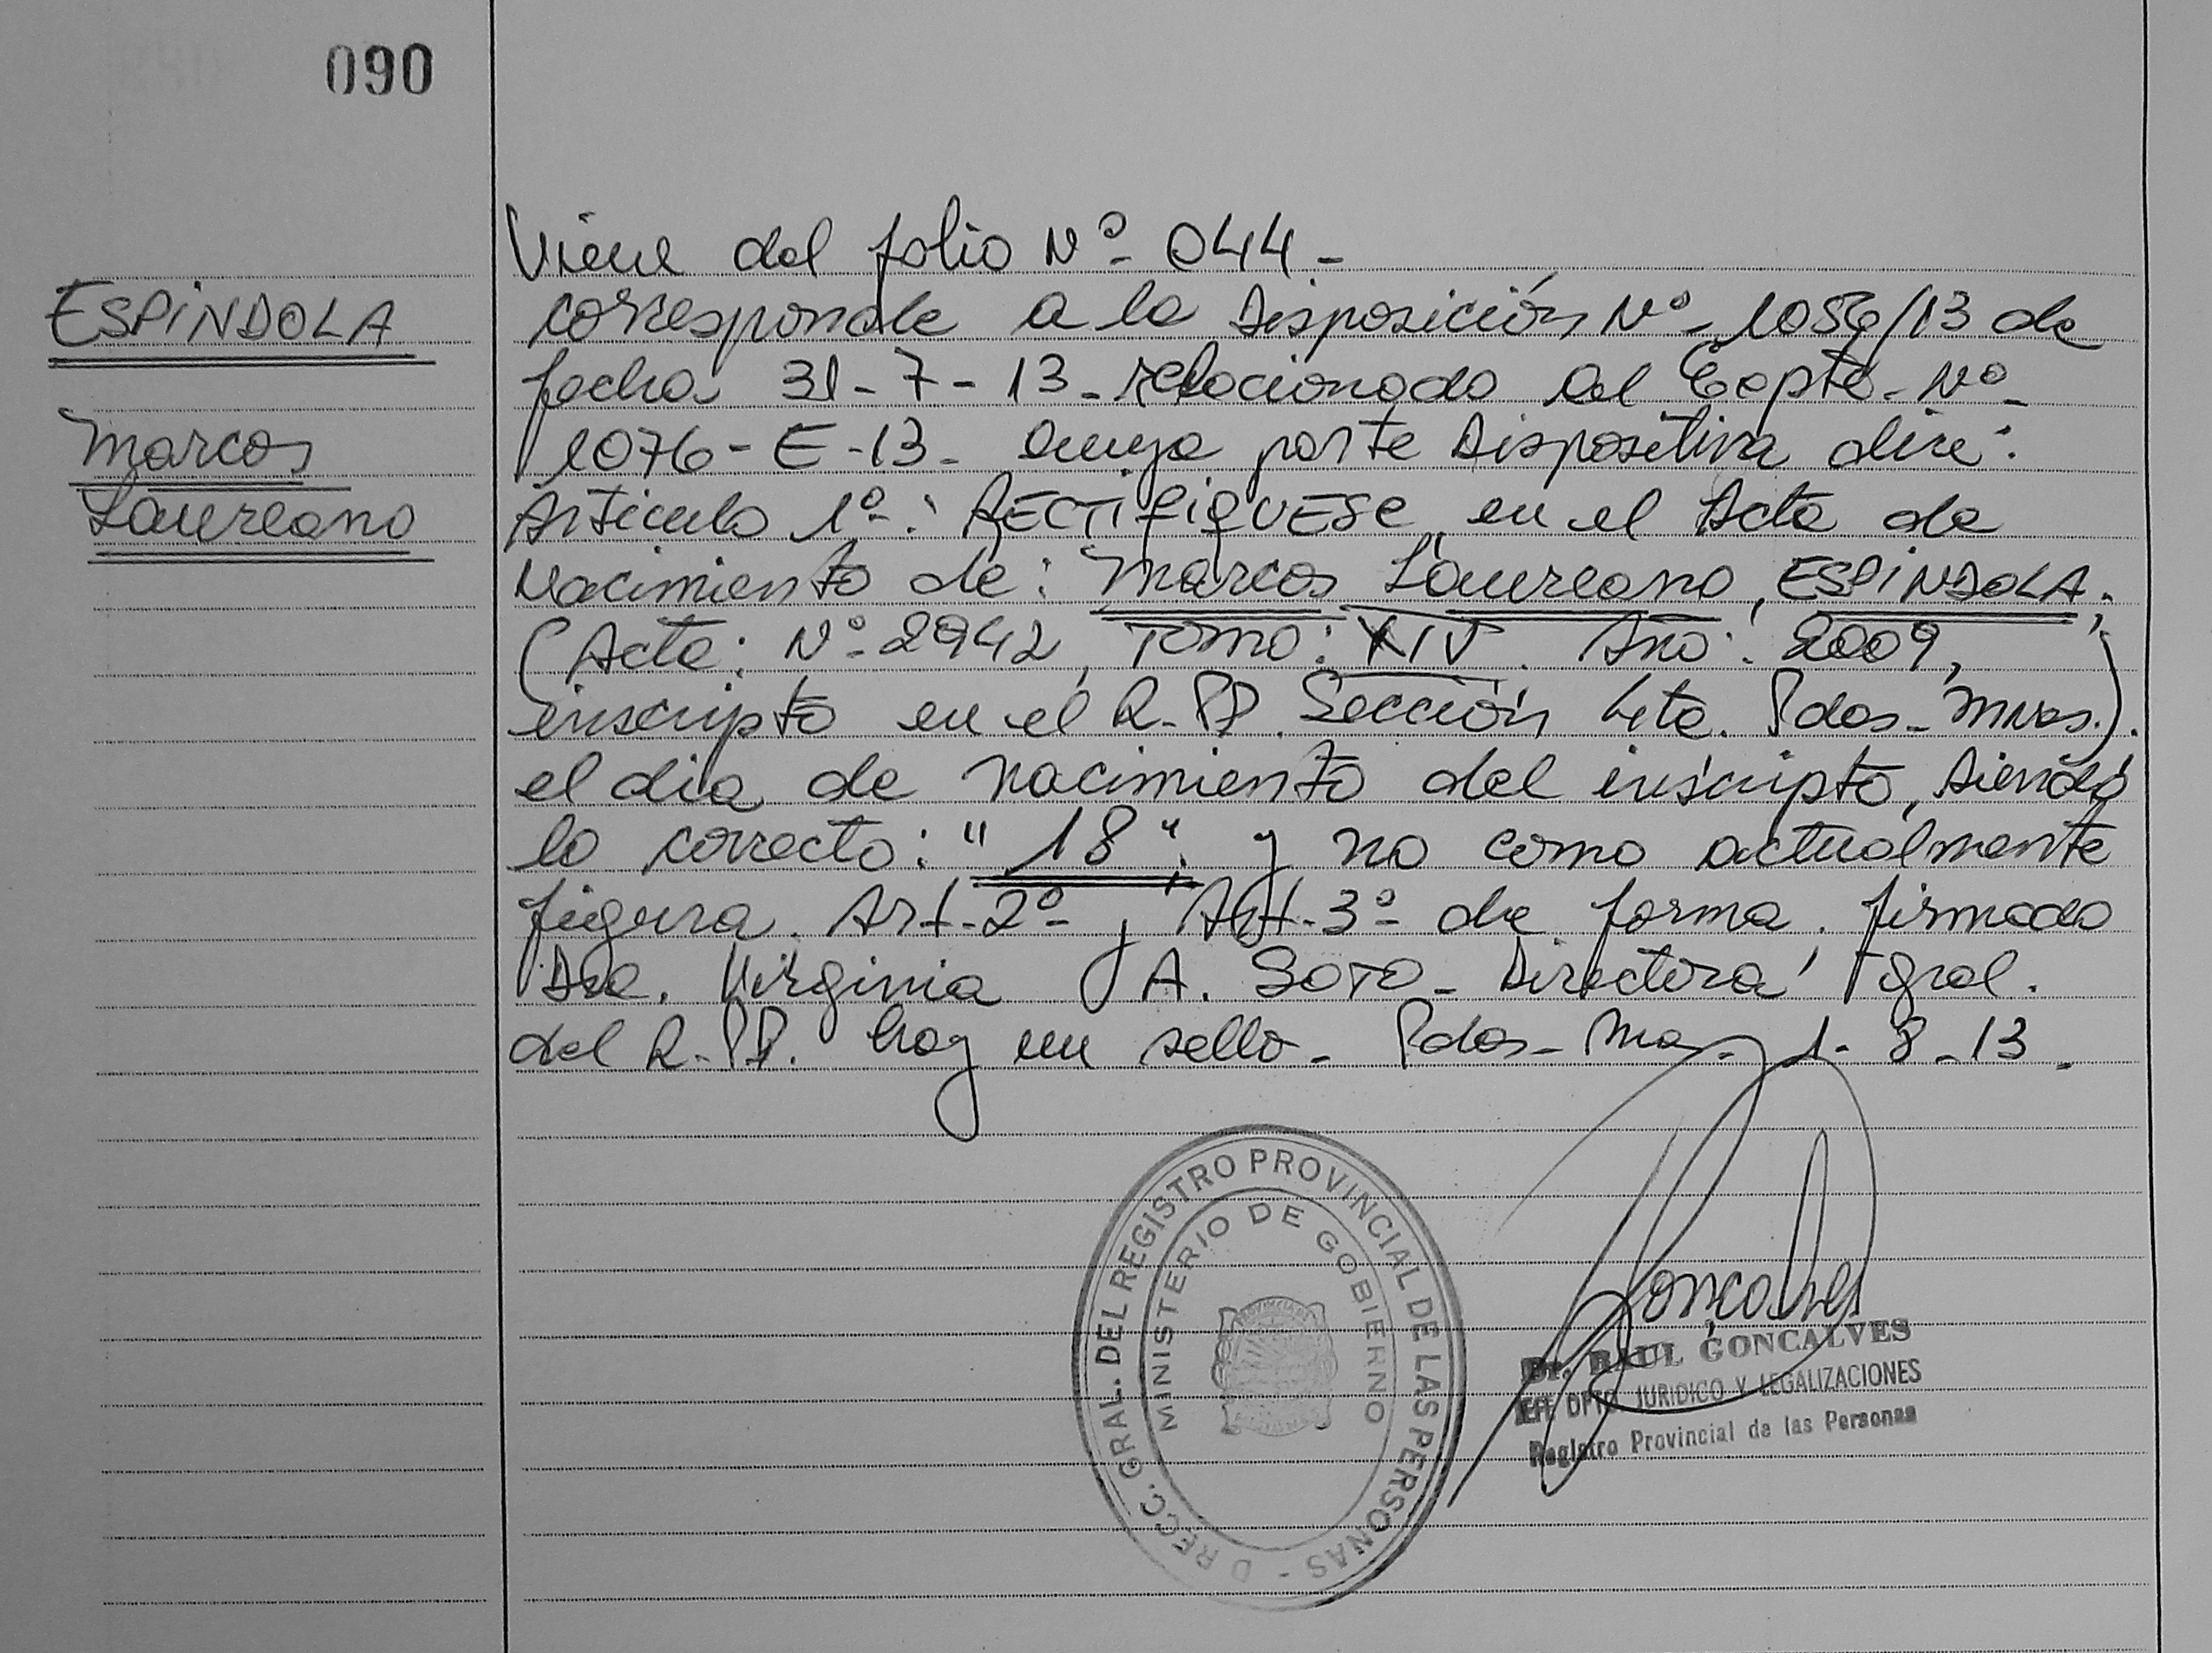 090
ESPINDOLA
Marcos
Laureano
Viene del folio Nº- 044-
corresponde a la Disposición Nº- 1056/13 de
fecha 31-7-13- relacionado al Expte- Nº-
1076-E-13- cuya parte Dispositiva dice:
Artículo 1º-: RECTIFIQUESE en el Acta de
Nacimiento de: Marcos Laureano, ESPINDOLA;
(Acta: Nº-2942, Tomo: XIV. Año: 2009,
inscripto en el R.PP. Sección 4ta. Pdas-Mnes.).
el dia de nacimiento del inscripto, siendo
lo correcto: "18"; y no como actualmente
figura. Art-2º- y Art-3º- de forma. firmado
Dra. Virginia A. SOTO- Directora Gral.
del R.PP. hay un sello- Pdas-Mnes- 1-8-13.
DRECC. GRAL. DEL REGISTRO PROVINCIAL DE LAS PERSONAS -
MINISTERIO DE GOBIERNO
Goncalves
Dr. RAUL GONCALVES
JEFE DPTO JURIDICO Y LEGALIZACIONES
Registro Provincial de las Personas